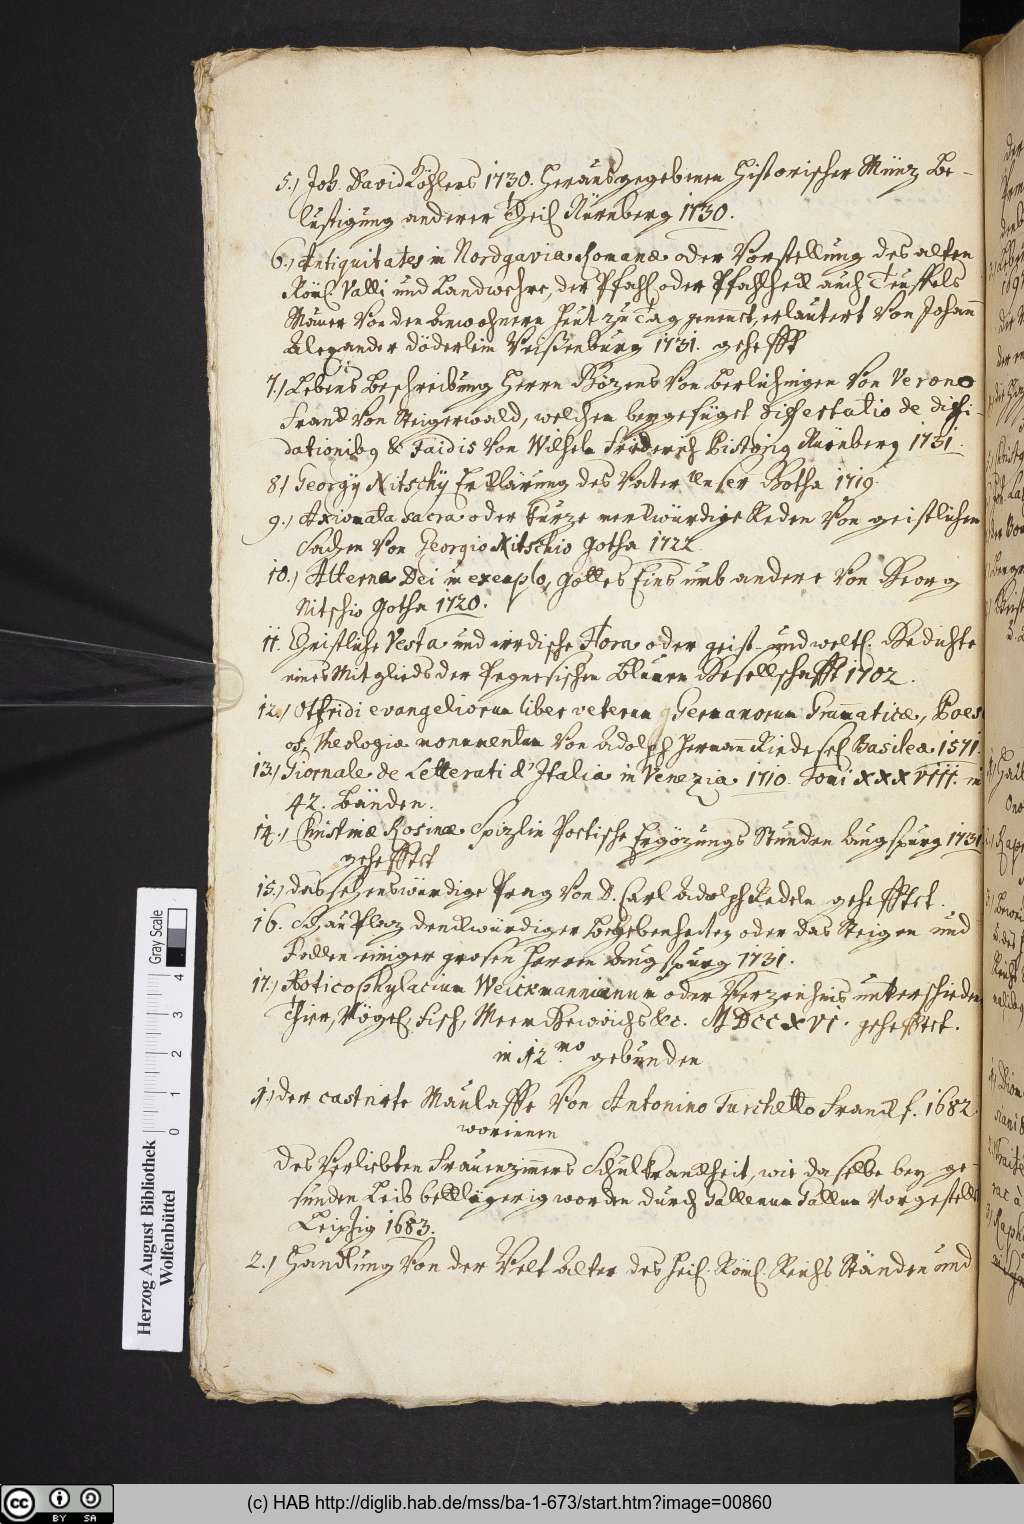 5.) Joh. David Köhlers 1730. herausgegebenen Historischer Münz Be-
lustigung anderer Theil Nürnberg 1730.
6.) Antiquitates in Nordgavia Romanæ oder Vorstellung des alten
Röm. Valli und Landwehre, der Pfahl oder Pfahlheck auch Teuffels
Mauer von den Anwohnern heut zu Tag genennt, erläutert von Johann
Alexander Döderlein Weissenburg 1731. gehefft
7.) Lebens Beschreibung Herrn Gözens von Berlichingen von Verono
Franck von Steigerwald, welchem beygefüget Dissertatio de diffi-
dationibq & Faidis von Wilhelm Friderich Pistorig Nürnberg 1731.
8.) Georgÿ Nitschÿ Erklärung des Vater Unser Gotha 1719.
9.) Axiomata sacra oder kurze merkwürdige Reden von geistlichen
Sachen von Georgio Nitschio Gotha 1722
10.) Alterna Dei in exemplo, Gottes Eins umb andere von Georg
Nitschio Gotha 1720.
11. Christliche Vesta und irrdische Flora oder geist- und weltl. Gedichte
eines Mitglieds der Pegnesischen Blumen Gesellschafft 1702.
12.) Otfridi evangeliorum liber veterum Germanorum Grammaticæ, Poes
Theologiæ monumentum von Adolph Hermann Riedesel Basileæ 1571.
13.) Giornale de Letterati d'Italia in Venezia 1710. Tomi XXXVIII. in
42. Bänden.
14.) Christinæ Rosinæ Spizlin Poetische Ergözungs Stunden Augspurg 1731
gehefftet
15.) das sehenswürdige Prag von D. Carl Adolph Redeln gehefftet.
16. SchauPlaz denckwürdiger Begebenheiten oder das Steigen und
Fallen einiger grosen Herren Augspurg 1731.
17.) Exoticophylacium Weickmannianum oder Verzeichnis unterschieden
Thier, Vögel, Fisch, Meer Gewächs &c. MDCCXVI. gehefftet.
in 12.mo gebunden
1.) der castrirte Maulaffe von Antonino Turchetto Franckf. 1682.
worinnen
des Verliebten Frauenzimmers Schulkranckheit, wie daselbe bey ge-
sunden Leib bettlägerig worden durch Gallenum Gallum vorgestellt
Leipzig 1683.
2.) Handlung von der Welt Alter des heil. Röm. Reichs Ständen und
Herzog August Bibliothek
Wolfenbüttel
Gray Scale
0 1 2 3 4
(c) HAB http://diglib.hab.de/mss/ba-1-673/start.htm?image=00860
cc BY SA